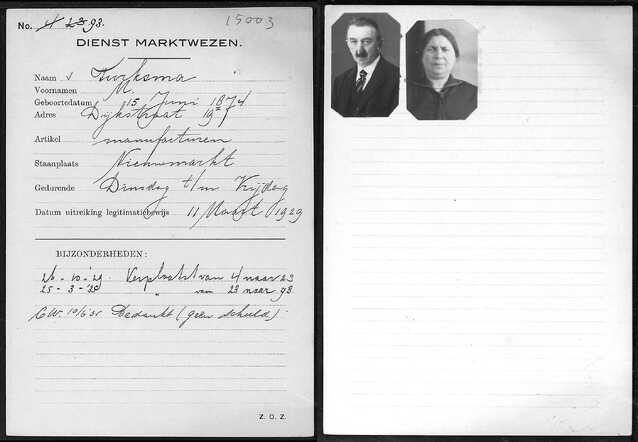 No. 4 23 93. 15003
DIENST MARKTWEZEN.
Naam v Kurksma
Voornamen M.
Geboortedatum 15 Juni 1874
Adres Dijkstraat 19
Artikel manufacturen
Staanplaats Nieuwmarkt
Gedurende Dinsdag t/m Vrijdag
Datum uitreiking legitimatiebewijs 11 Maart 1929
BIJZONDERHEDEN:
26-10-29. Verplaatst van 4 naar 23
25-3-30 " van 23 naar 93.
C.W. 10/6 31 Bedankt (geen schuld)
Z. O. Z.